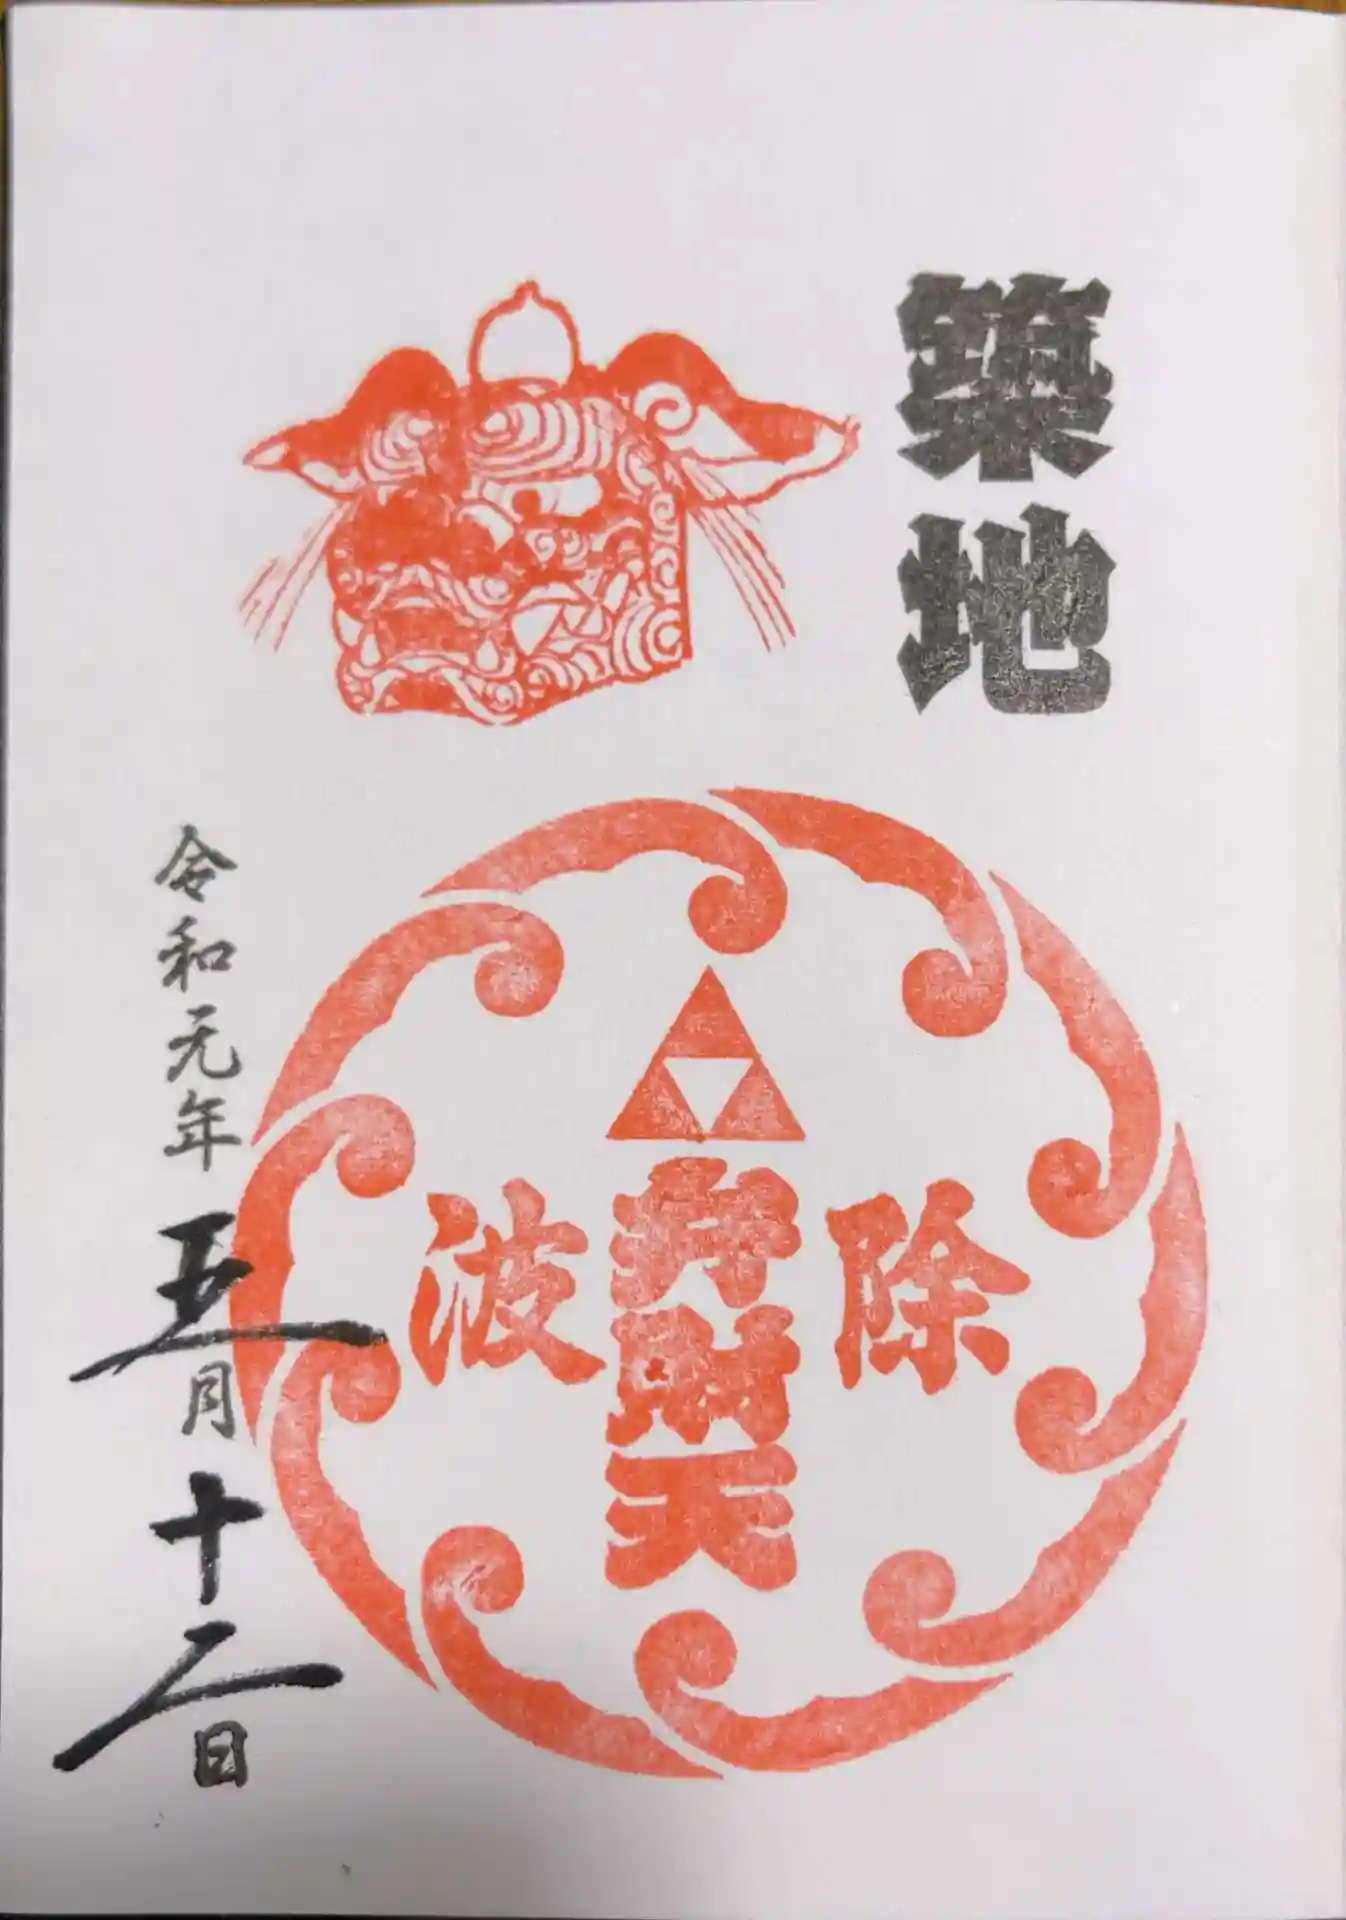 築地
除
弁財天
波
令和元年五月十二日